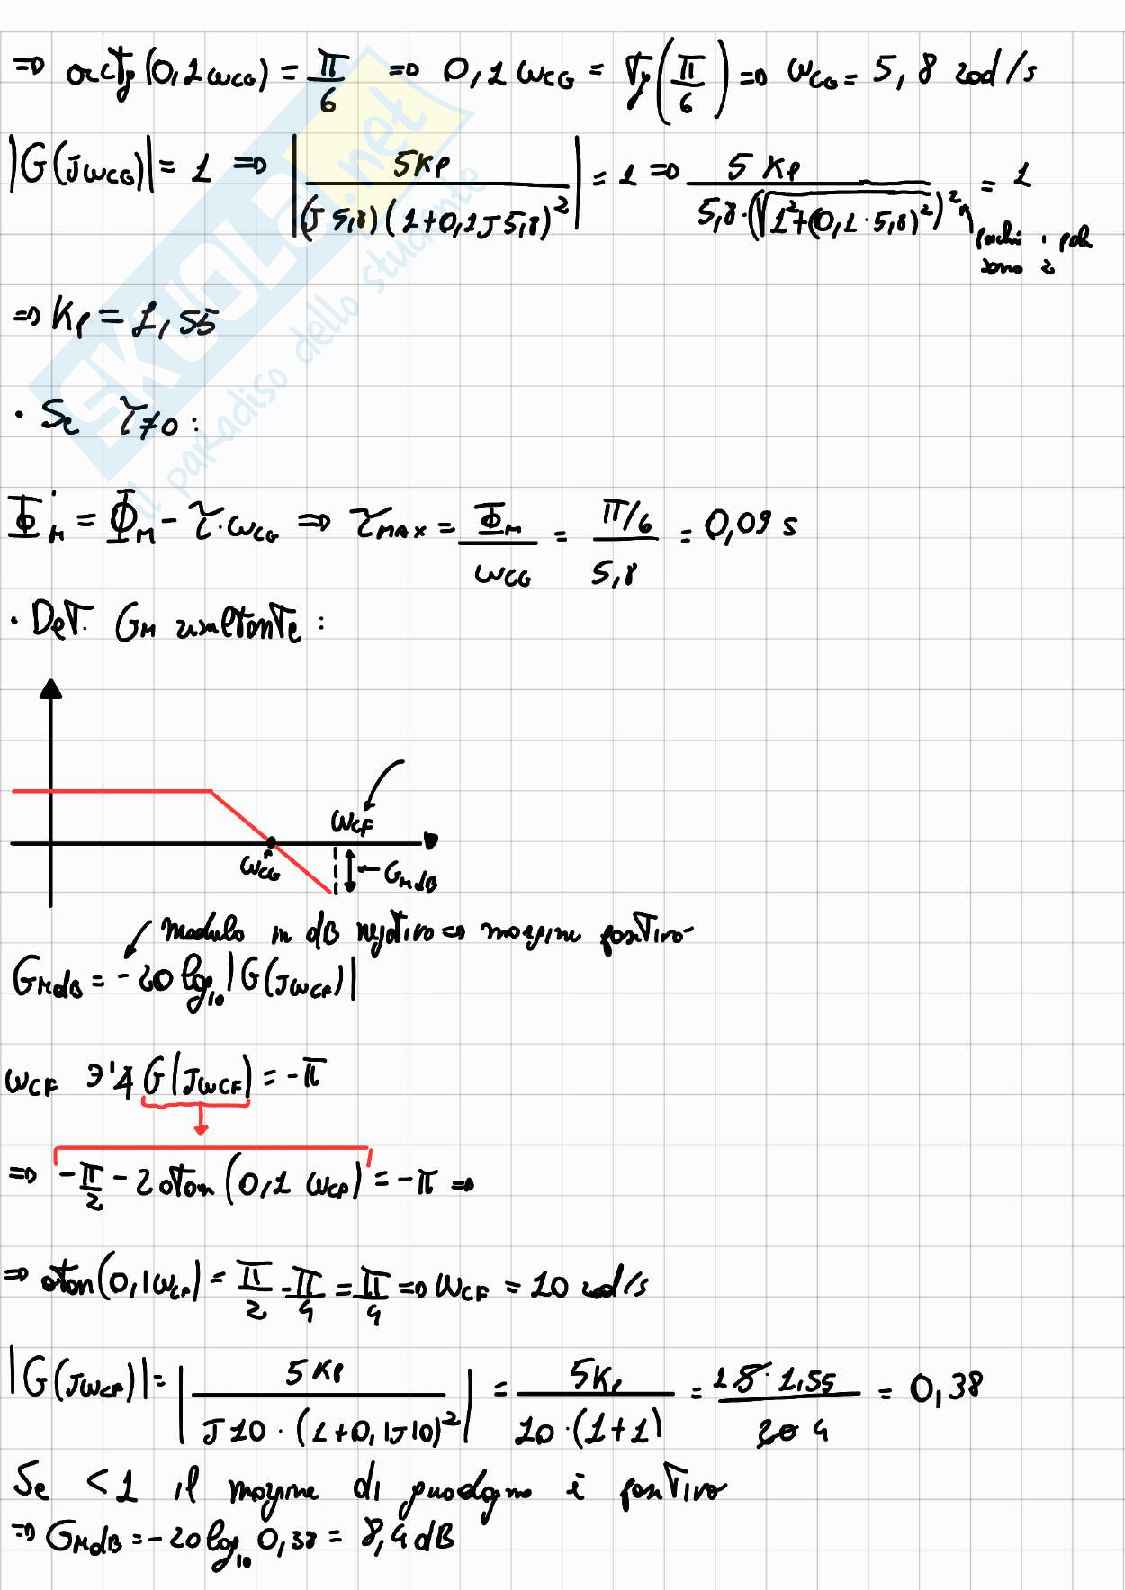 ⇒ arctg(0,1 ωCG) = π/6 ⇒ 0,1 ωCG = Tg(π/6) ⇒ ωCG = 5,8 rad/s
|G(JωCG)| = 1 ⇒ |5Kp / (J 5,8)(1+0,1J5,8)²| = 1 ⇒ 5 Kp / 5,8·(√(1²+(0,1·5,8)²))² = 1
poiché i poli
sono 2
⇒ Kp = 1,55
• Se τ≠0:
Φ'M = ΦM - τ·ωCG ⇒ τMAX = ΦM/ωCG = (π/6)/5,8 = 0,09 s
• Det. GM risultante:
ωCF
ωCG
GMdB
Modulo in dB negativo ⇔ margine positivo
GMdB = -20 log10 |G(JωCF)|
ωCF ∋' ∡ G(JωCF) = -π
⇒ -π/2 - 2 atan(0,1 ωCF) = -π ⇒
⇒ atan(0,1ωCF) = π/2 - π/4 = π/4 ⇒ ωCF = 10 rad/s
|G(JωCF)| = |5Kp / J10·(1+0,1J10)²| = 5Kp / 10·(1+1) = 1 5·1,55 / 20 4 = 0,38
Se < 1 il margine di guadagno è positivo
⇒ GMdB = -20 log10 0,38 = 8,4 dB
SKUOLA.net
il paradiso dello studente